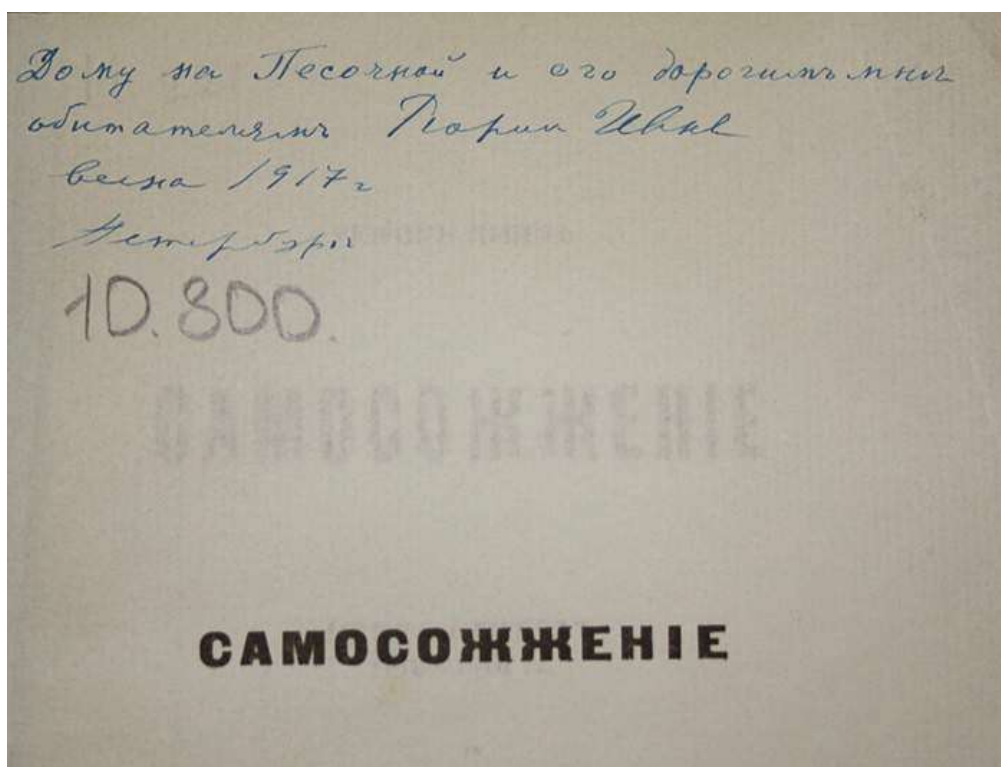 Дому на Песочной и его дорогимъ мнѣ
обитателямъ Рюрик Ивнев
весна 1917 г
Петербург
10.800.
САМОСОЖЖЕНІЕ
САМОСОЖЖЕНІЕ